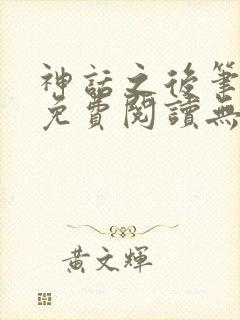 神話之後筆
免費閱讀無
黃文輝